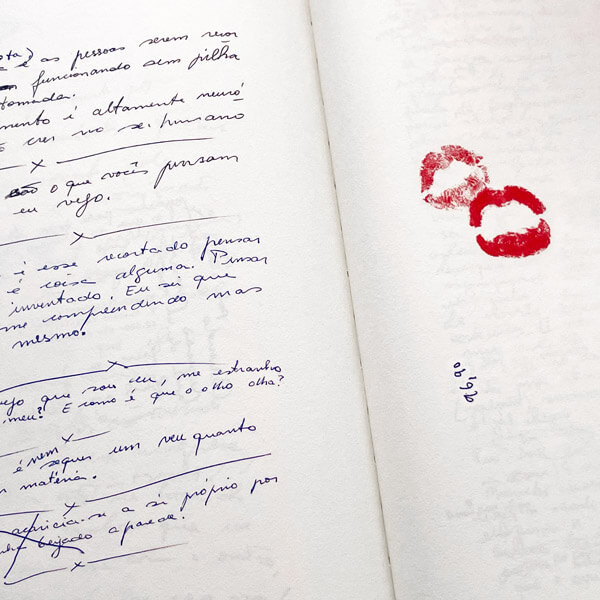 ota)
é as pessoas serem
funcionando sem pilha
tomada.
mento é altamente neuró
E crer no se. humano
x
o que vocês pensam
eu vejo.
x
esse recortado pensar
é coisa alguma. Pensar
inventado. Eu sei que
me compreendendo mas
mesmo.
x
vejo que sou eu, me estranho
meu? E como é que o olho olha?
x
é nem sequer um veu quanto
matéria.
x
acaricia-se a si próprio por
beijado a parede.
x